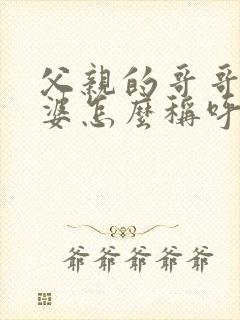 父親的哥哥
婆怎麼稱呼
爺爺爺爺爺